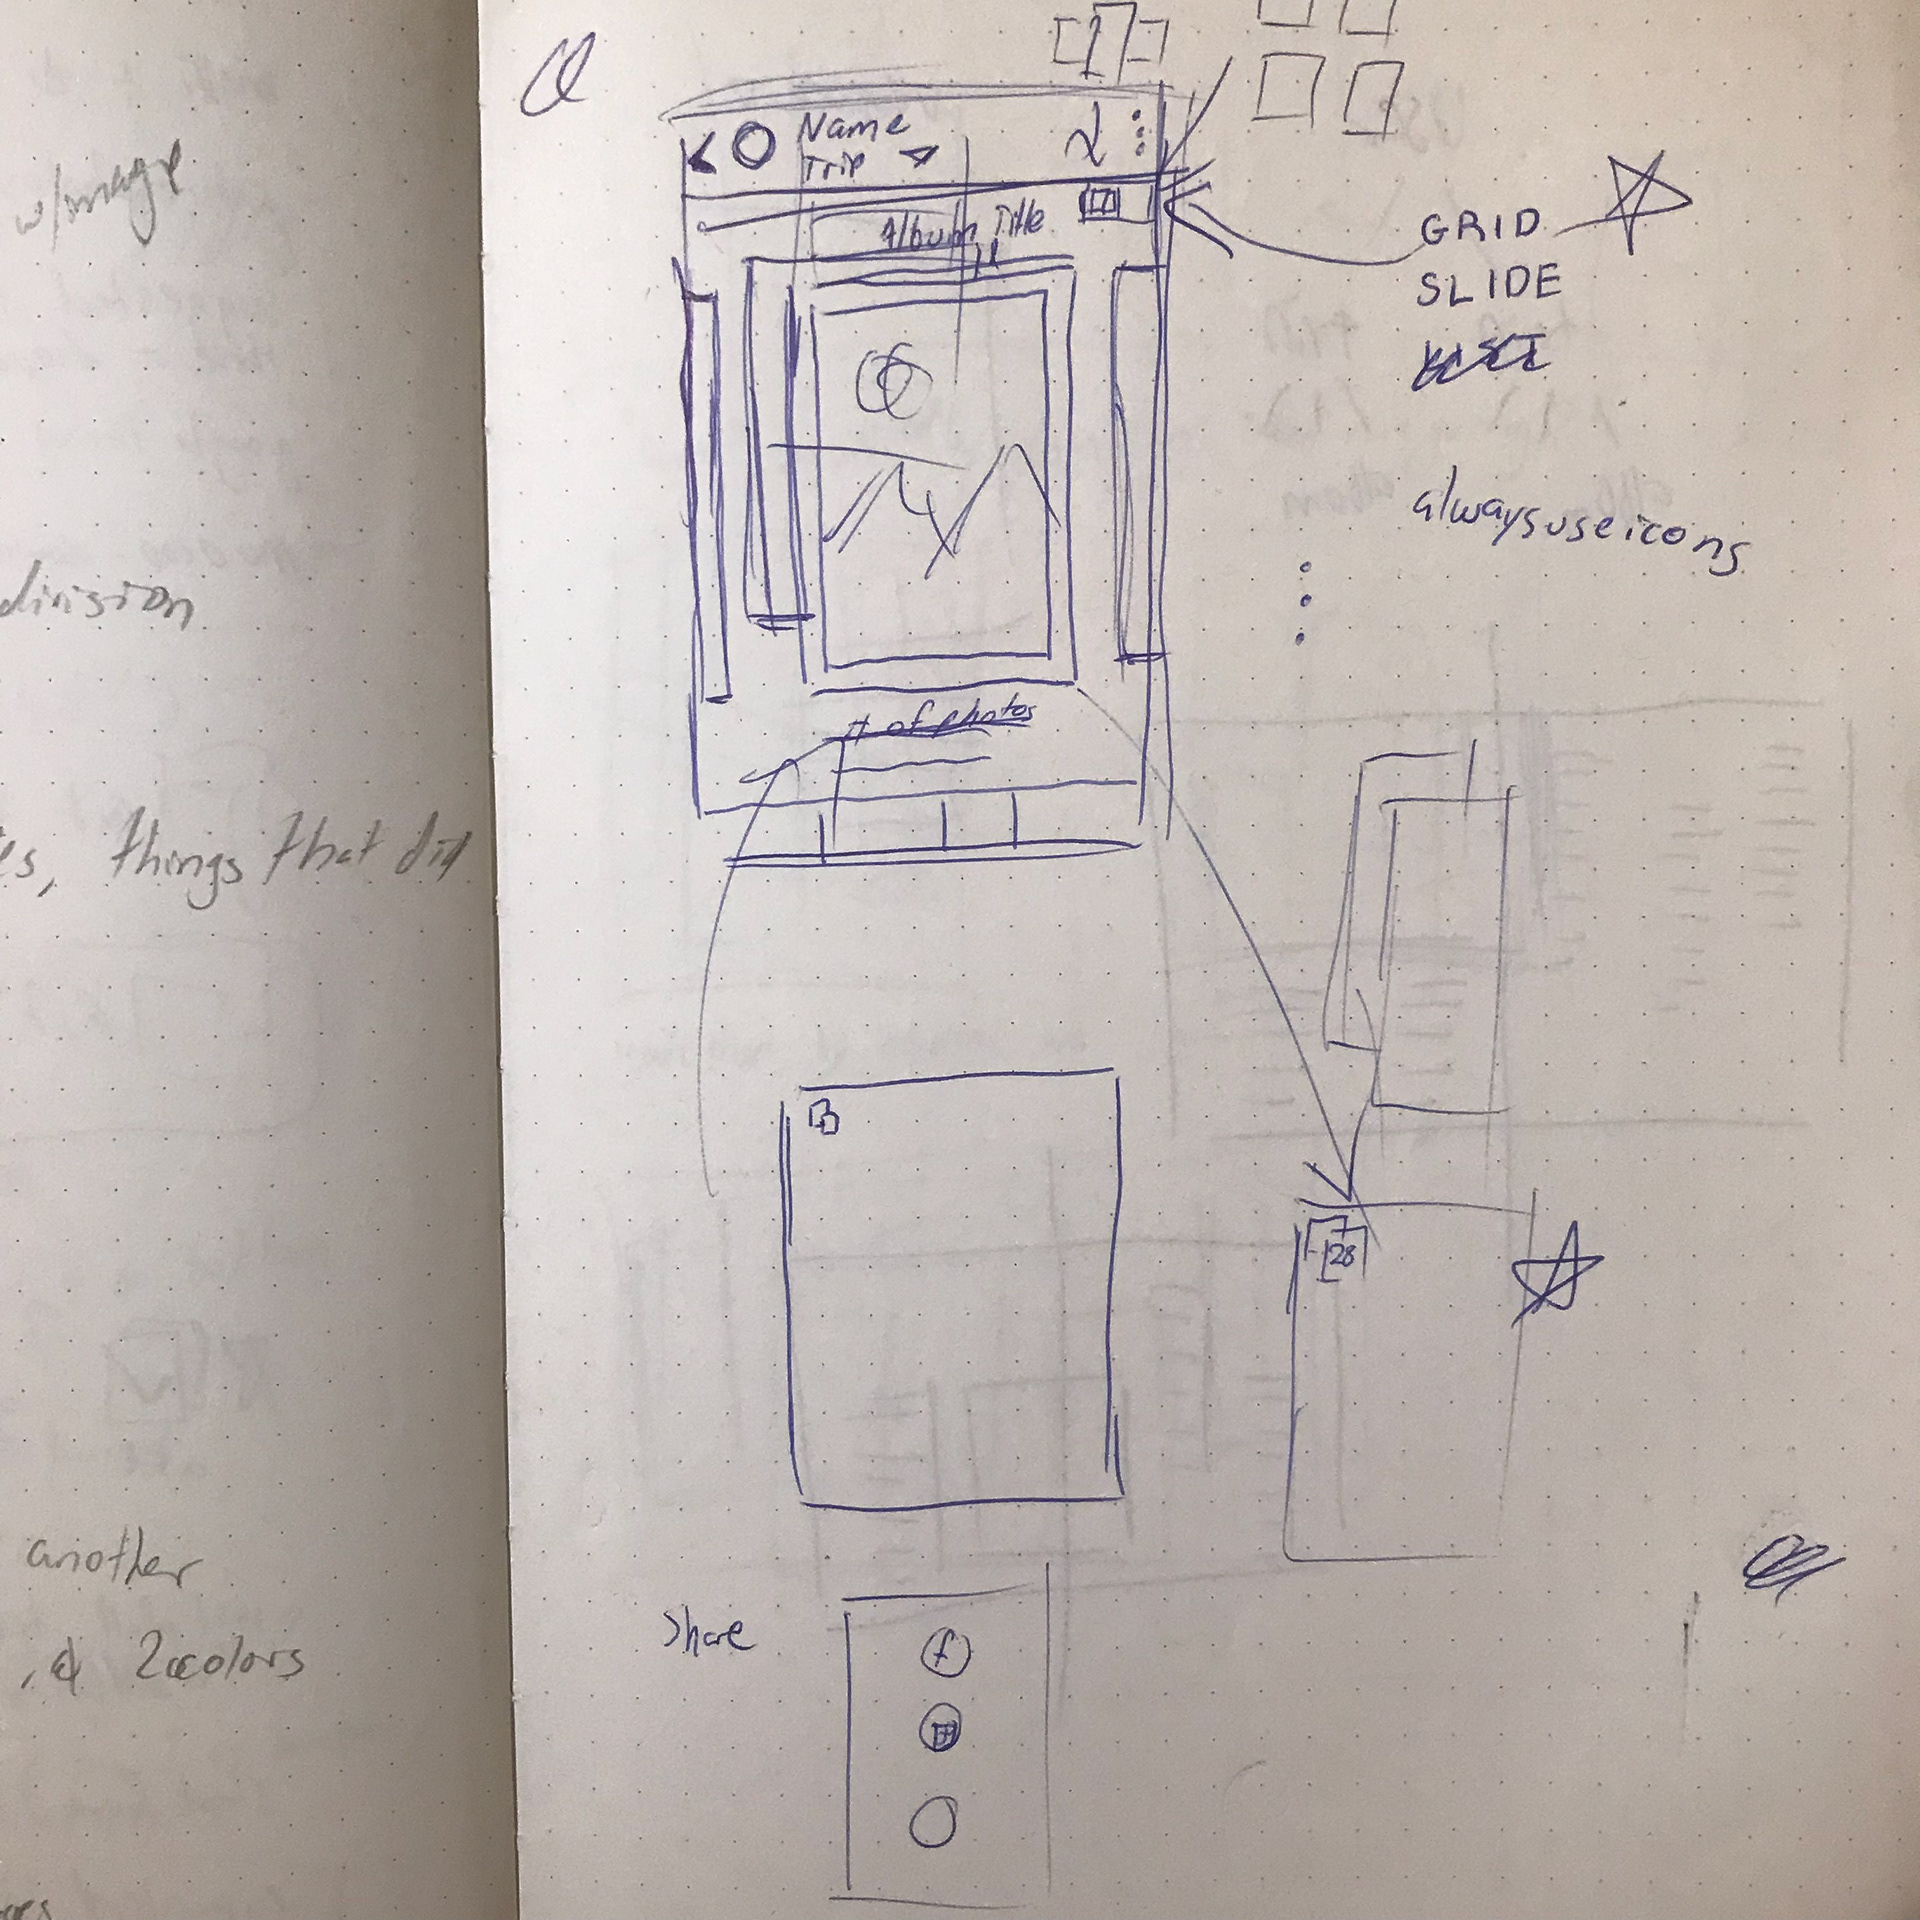 w/image
division
es, things that did
another
, & 2 colors
Name
Trip
Album Title
GRID
SLIDE
always use icons
# of photos
28
Share
f